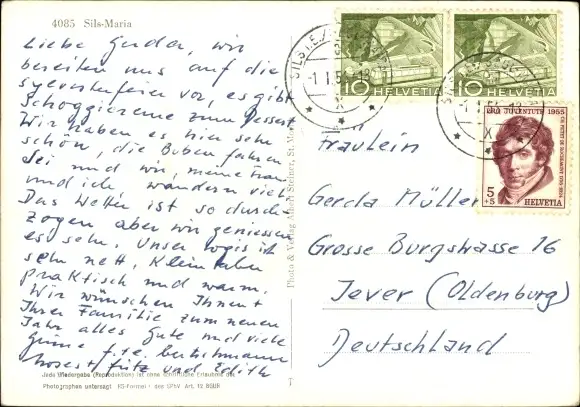 4085 Sils-Maria
Liebe Gerda, wir
bereiten uns auf die
Sylvesterfeier vor, es gibt
Schoggicreme zum Dessert
Wir haben es hier sehr
schön, die Buben fahren
Ski und wir, meine Frau
und ich wandern viel
Das Wetter ist so durch-
zogen aber wir geniessen
es sehr. Unser Logis ist
sehr nett, klein aber
praktisch und warm.
Wir wünschen Ihnen +
Ihrer Familie zum neuen
Jahr alles Gute und viele
Grüsse
Fritz und Edith
Jede Wiedergabe (Reproduktion) ist ohne schriftliche Erlaubnis des
Photographen untersagt
Art. 12 BGUR
Photo & Verlag Albert Steiner, St. Mor
HELVETIA
10
HELVETIA
10
SILS I.E.
PRO JUVENTUTE 1955
5+5
HELVETIA
Fräulein
Gerda Müller
Grosse Burgstrasse 16
Jever (Oldenburg)
Deutschland